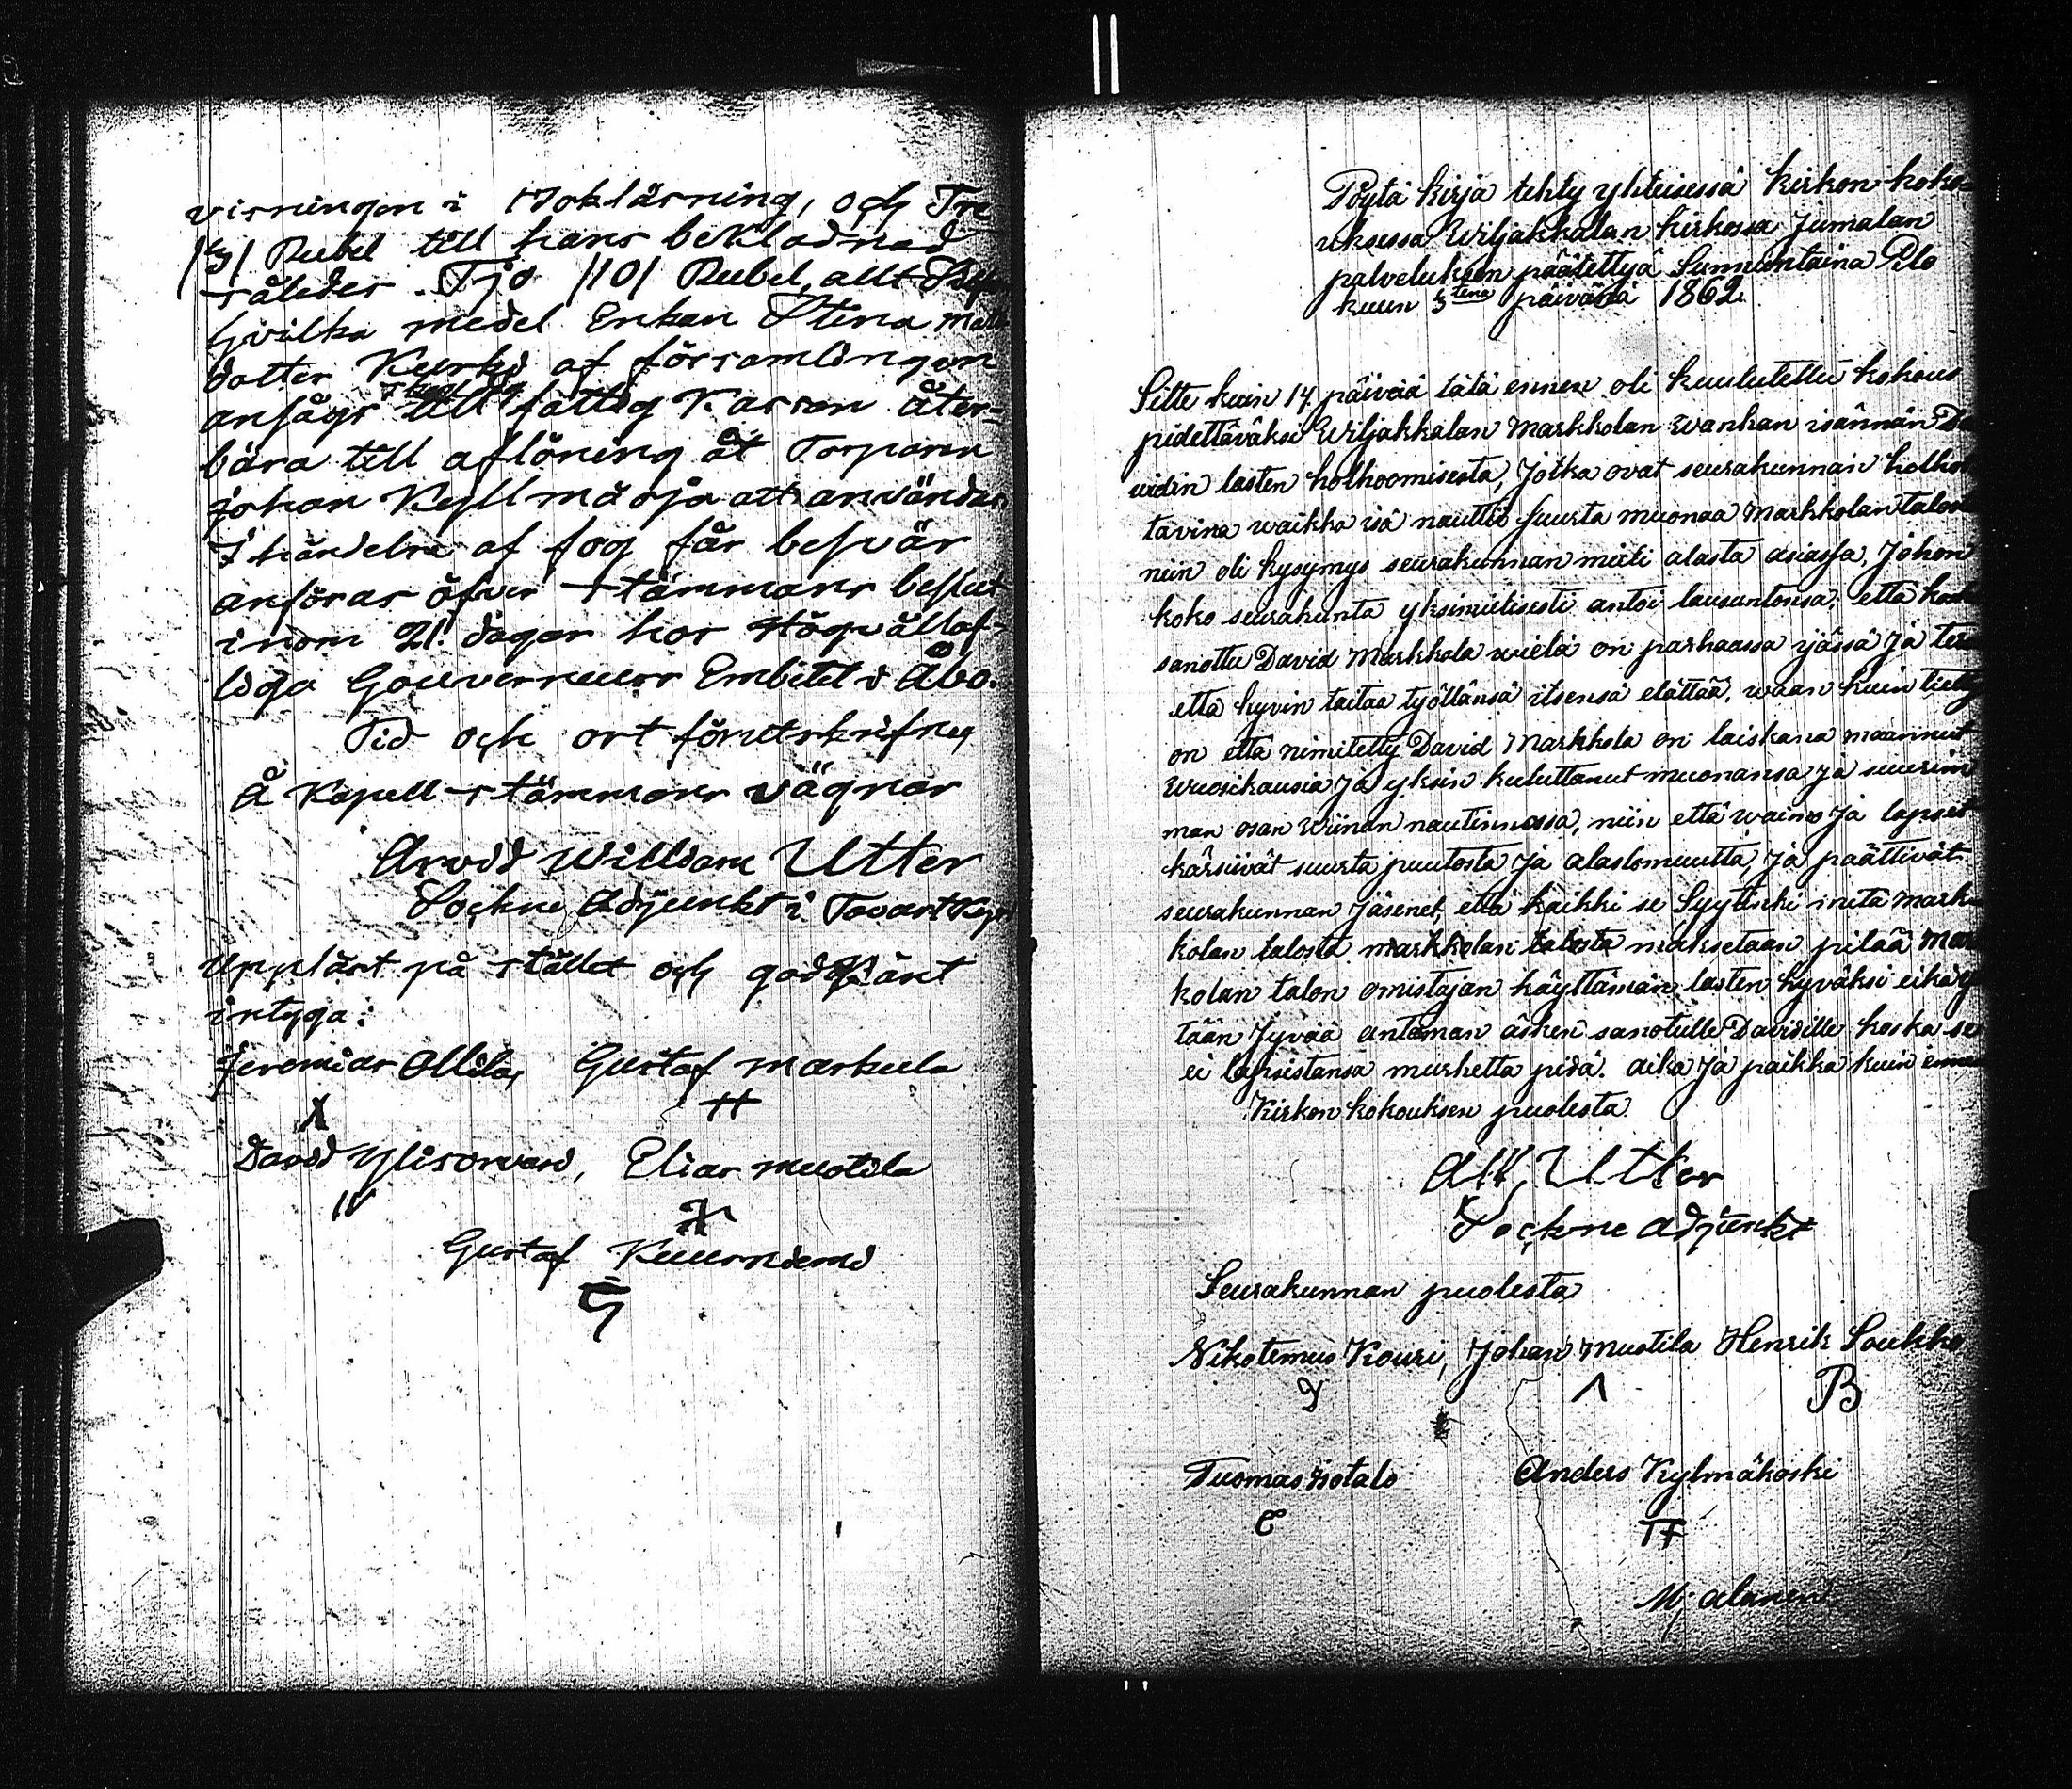 visningen i Bokläsning, och Tre
/3/ Rubel till hans beklädnad
således Tjo /10/ Rubel, allt
hvilka medel Enkan Stina Matts
dotter Kurki af församlingen
ansågs till fattig Kassan åter-
bära till aflöning åt Torparen
Johan Kyllmäoja att användas
I händelse af fog får besvär
anföras öfver stämmans beslut
inom 21 dagar hos Högvällof-
liga Gouverneurs Embetet i Åbo.
Tid och ort förutskrifne
Å Kapell-stämmans vägnar
Arvid William Utter
Sockne Adjunkt i Tavastkyrö
Uppläst på stället och godkänt
intyga:
Jeremias Ollila, Gustaf Markula
X H
David Ylisorvari, Elias Muotila
IV
Gustaf Kuurniemi
G
Pöytä kirja tehty yhteisessä kirkon koko-
uksessa Wiljakkalan kirkossa Jumalan
palveluksen päätettyä Sunnuntaina Elo
kuun 3tena päivänä 1862.
Sitte kuin 14 päivää tätä ennen oli kuulutettu kokous
pidettäväksi Wiljakkalan Markkolan wanhan isännän Da
vidin lasten holhoomisesta, Jotka ovat seurakunnan holhot
tavina waikka isä nauttii suurta muonaa Markkolan talosta
niin oli kysymys seurakunnan mieli alasta asiassa, Johon
koko seurakunta yksimielisesti antoi lausuntonsa; että koska
sanottu David Markkola wielä on parhaassa ijässä Ja ter
että hyvin taitaa työllänsä itsensä elättää, waan kuin tietty
on että nimitetty David Markkola on laiskana maannut
wuosikausia Ja yksin kuluttanut muonansa ja suurim
man osan wiinan nautinnossa, niin että waimo Ja lapset
kärsiivät suurta puutosta Ja alastomuutta, Ja päättivät
seurakunnan Jäsenet, että kaikki se Syytinki mitä Mark-
kolan talosta markkolan talosta maksetaan pitää Mar
kolan talon omistajan käyttämän lasten hyväksi eikä y
tään Jyvää antaman äsken sanotulle Davidille koska se
ei lapsistansa murhetta pidä. aika Ja paikka kuin ennen
Kirkon kokouksen puolesta
AW, Utter
Sockne adjunkt
Seurakunnan puolesta
Nikotemus Kouri, Johan Muotila Henrik Soukko
Λ B
Tuomas Isotalo Anders Kylmäkoski
C
M, alanen